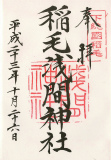 奉拝
稲毛浅間神社
平成二十三年十月二十六日